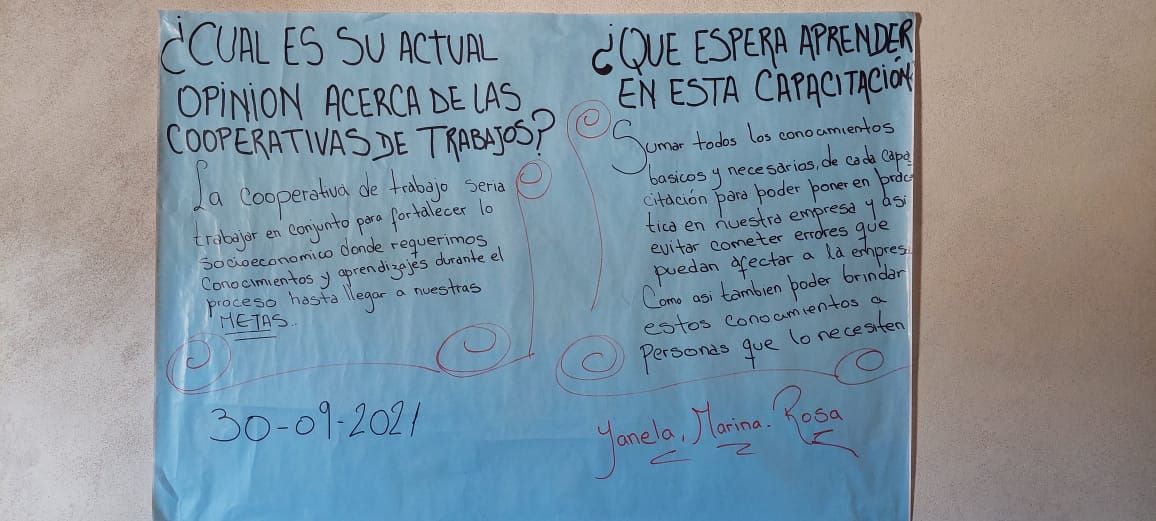 ¿CUAL ES SU ACTUAL
OPINION ACERCA DE LAS
COOPERATIVAS DE TRABAJOS?
La cooperativa de trabajo seria
trabajar en conjunto para fortalecer lo
socioeconomico donde requerimos
Conocimientos y aprendizajes durante el
proceso hasta llegar a nuestras
METAS..
30-09-2021
¿QUE ESPERA APRENDER
EN ESTA CAPACITACIÓN
Sumar todos los conocimientos
basicos y necesarios, de cada capa
citación para poder poner en prac
tica en nuestra empresa y asi
evitar cometer errores que
puedan afectar a la empres
Como asi tambien poder brindar
estos conocimientos a
Personas que lo necesiten
Yanela, Marina. Rosa